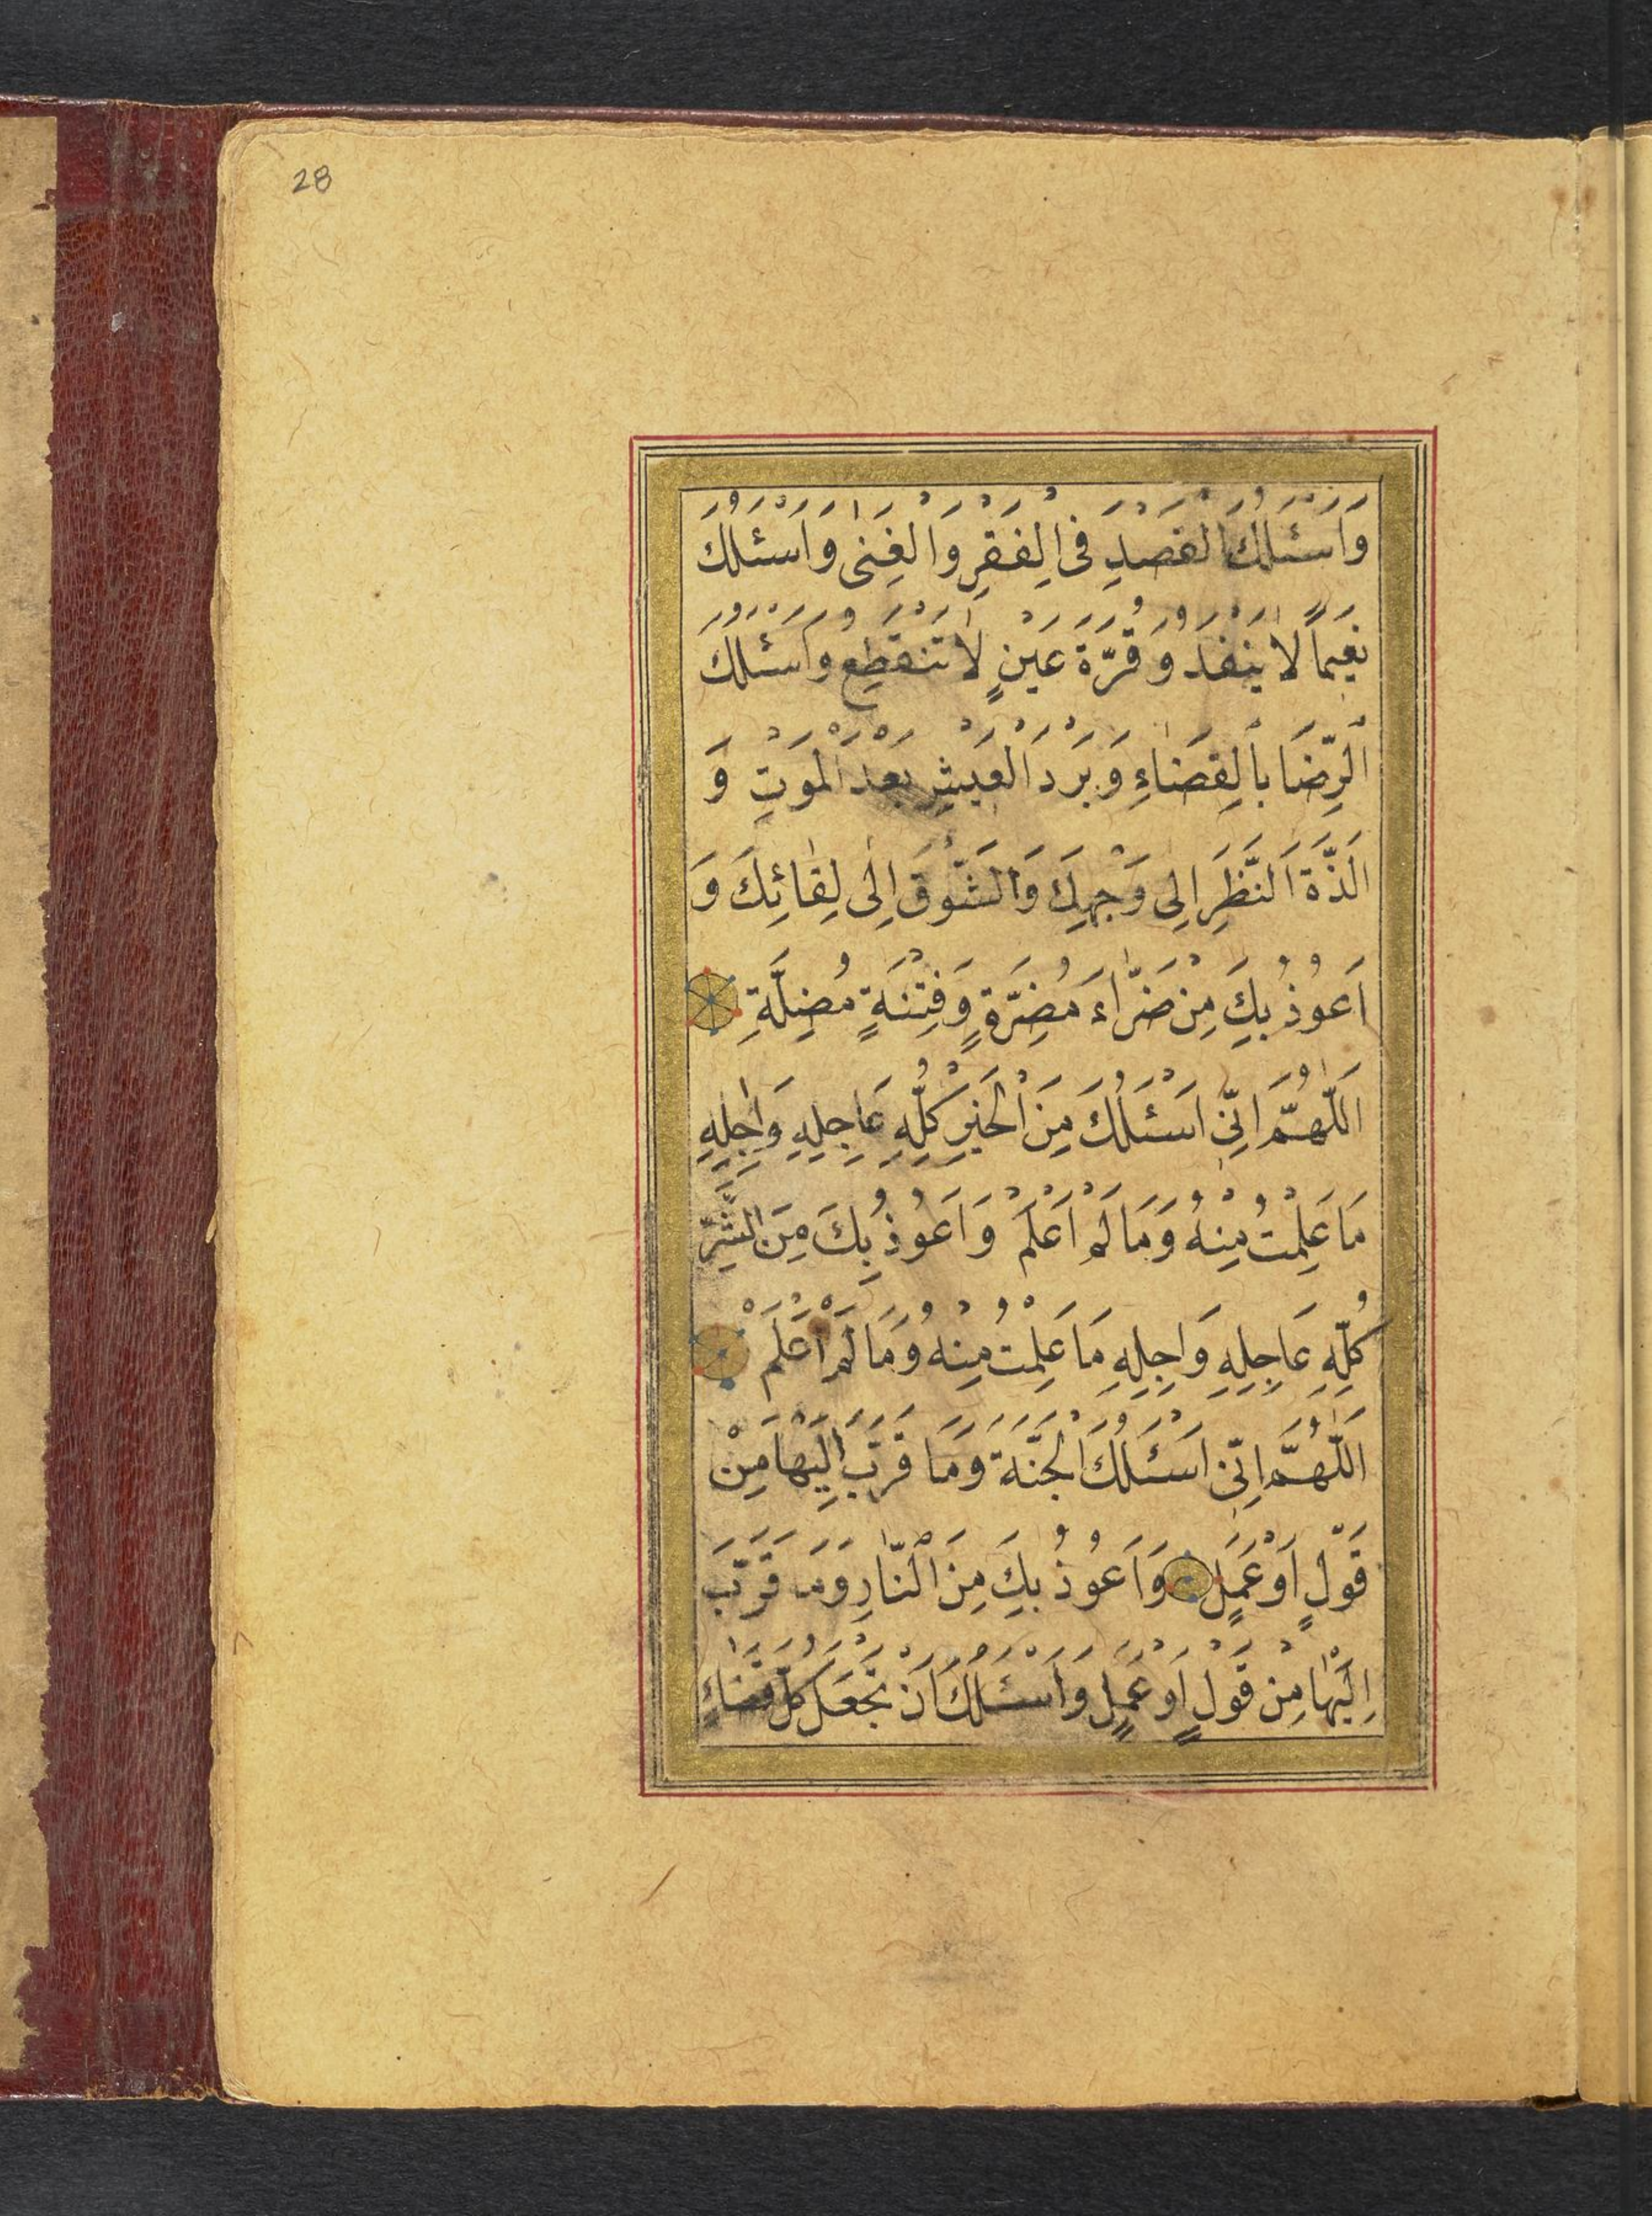 28
وَاَسْئَلُكَ الْقَصْدِ فِى الْفَقْرِ وَالْغِنٰى وَاَسْئَلُكَ
نَعِيمًا لَا يَنْفَدُ وَ قُرَّةَ عَيْنٍ لَا تَنْقَطِعُ وَاَسْئَلُكَ
الرِّضَا بِالْقِضَاءِ وَ بَرْدَ الْعَيْشِ بَعْدَ الْمَوْتِ وَ
الَذَّةَ النَّظَرِ اِلٰى وَجْهِكَ وَالشَّوْقَ اِلٰى لِقَائِكَ وَ
اَعُوذُ بِكَ مِنْ ضَرَّاءَ مُضِرَّةٍ وَ فِتْنَةٍ مُضِلَّةٍ
اَللّٰهُمَّ اِنِّى اَسْئَلُكَ مِنَ الْخَيْرِ كُلِّهِ عَاجِلِهِ وَاٰجِلِهِ
مَا عَلِمْتُ مِنْهُ وَمَا لَمْ اَعْلَمْ وَ اَعُوذُ بِكَ مِنَ الشَّرِّ
كُلِّهِ عَاجِلِهِ وَاٰجِلِهِ مَا عَلِمْتُ مِنْهُ وَمَا لَمْ اَعْلَمْ
اَللّٰهُمَّ اِنِّى اَسْئَلُكَ الْجَنَّةَ وَمَا قَرَّبَ اِلَيْهَا مِنْ
قَوْلٍ اَوْ عَمَلٍ وَ اَعُوذُ بِكَ مِنَ النَّارِ وَمَا قَرَّبَ
اِلَيْهَا مِنْ قَوْلٍ اَوْ عَمَلٍ وَاَسْئَلُكَ اَنْ تَجْعَلَ كُلَّ قَضَاءٍ